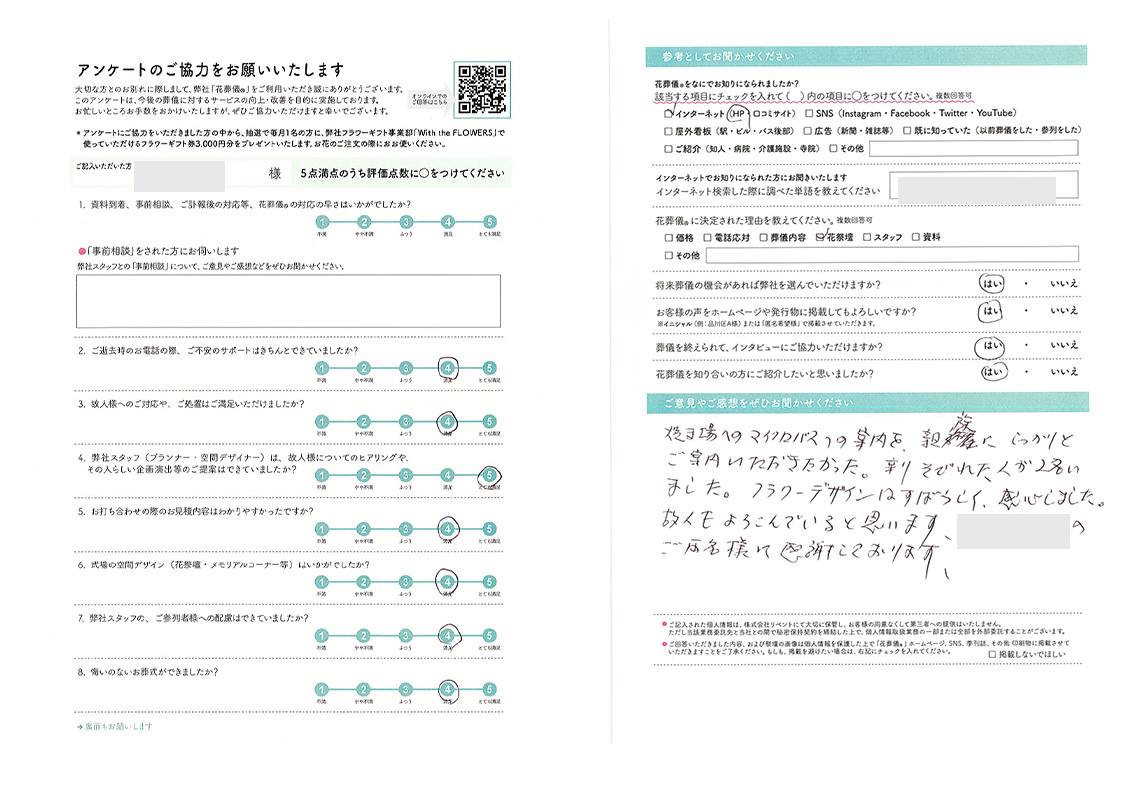 アンケートのご協力をお願いいたします
大切な方とのお別れに際しまして、弊社「花葬儀®」をご利用いただき誠にありがとうございます。
このアンケートは、今後の葬儀に対するサービスの向上・改善を目的に実施しております。
お忙しいところお手数をおかけいたしますが、ぜひご協力いただけますと幸いでございます。
オンラインでの
ご回答はこちら
* アンケートにご協力をいただきました方の中から、抽選で毎月1名の方に、弊社フラワーギフト事業部「With the FLOWERS」で
使っていただけるフラワーギフト券3,000円分をプレゼントいたします。お花のご注文の際にお使いください。
ご記入いただいた方 様 5点満点のうち評価点数に○をつけてください
1. 資料到着、事前相談、ご訃報後の対応等、花葬儀®の対応の早さはいかがでしたか?
1 2 3 4 5
不満 やや不満 ふつう 満足 とても満足
●「事前相談」をされた方にお伺いします
弊社スタッフとの「事前相談」について、ご意見やご感想などをぜひお聞かせください。
2. ご逝去時のお電話の際、ご不安のサポートはきちんとできていましたか?
1 2 3 4 5
不満 やや不満 ふつう 満足 とても満足
3. 故人様へのご対応や、ご処置はご満足いただけましたか?
1 2 3 4 5
不満 やや不満 ふつう 満足 とても満足
4. 弊社スタッフ(プランナー・空間デザイナー)は、故人様についてのヒアリングや、
その人らしい企画演出等のご提案はできていましたか?
1 2 3 4 5
不満 やや不満 ふつう 満足 とても満足
5. お打ち合わせの際のお見積内容はわかりやすかったですか?
1 2 3 4 5
不満 やや不満 ふつう 満足 とても満足
6. 式場の空間デザイン(花祭壇・メモリアルコーナー等)はいかがでしたか?
1 2 3 4 5
不満 やや不満 ふつう 満足 とても満足
7. 弊社スタッフの、ご参列者様への配慮はできていましたか?
1 2 3 4 5
不満 やや不満 ふつう 満足 とても満足
8. 悔いのないお葬式ができましたか?
1 2 3 4 5
不満 やや不満 ふつう 満足 とても満足
➔裏面もお願いします
参考としてお聞かせください
花葬儀®をなにでお知りになられましたか?
該当する項目にチェックを入れて( )内の項目に○をつけてください。複数回答可
□インターネット(HP・口コミサイト) □SNS(Instagram・Facebook・Twitter・YouTube)
□屋外看板(駅・ビル・バス後部) □広告(新聞・雑誌等) □既に知っていた(以前葬儀をした・参列をした)
□ご紹介(知人・病院・介護施設・寺院) □その他
インターネットでお知りになられた方にお聞きいたします
インターネット検索した際に調べた単語を教えてください
花葬儀®に決定された理由を教えてください。複数回答可
□価格 □電話応対 □葬儀内容 □花祭壇 □スタッフ □資料
□その他
将来葬儀の機会があれば弊社を選んでいただけますか? はい ・ いいえ
お客様の声をホームページや発行物に掲載してもよろしいですか? はい ・ いいえ
※イニシャル(例:品川区A様)または「匿名希望様」で掲載させていただきます。
葬儀を終えられて、インタビューにご協力いただけますか? はい ・ いいえ
花葬儀を知り合いの方にご紹介したいと思いましたか? はい ・ いいえ
ご意見やご感想をぜひお聞かせください
場へのマイクロバスの案内を、親族にしっかりと
ご案内いただきたかった。乗りそびれた人が2名い
ました。フラワーデザインはすばらしく、感心しました。
故人もよろこんでいると思います、 の
ご両名様に感謝しております、
●ご記入された個人情報は、株式会社リベントにて大切に保管し、お客様の同意なくして第三者への提供はいたしません。
ただし当該業務委託先と当社との間で秘密保持契約を締結した上で、個人情報取扱業務の一部または全部を外部委託することがございます。
●ご回答いただきました内容、および祭壇の画像は個人情報を保護した上で「花葬儀®」ホームページ、SNS、季刊誌、その他 印刷物に掲載させて
いただきますことをご了承ください。もしも、掲載を避けたい場合は、右記にチェックを入れてください。 □掲載しないでほしい